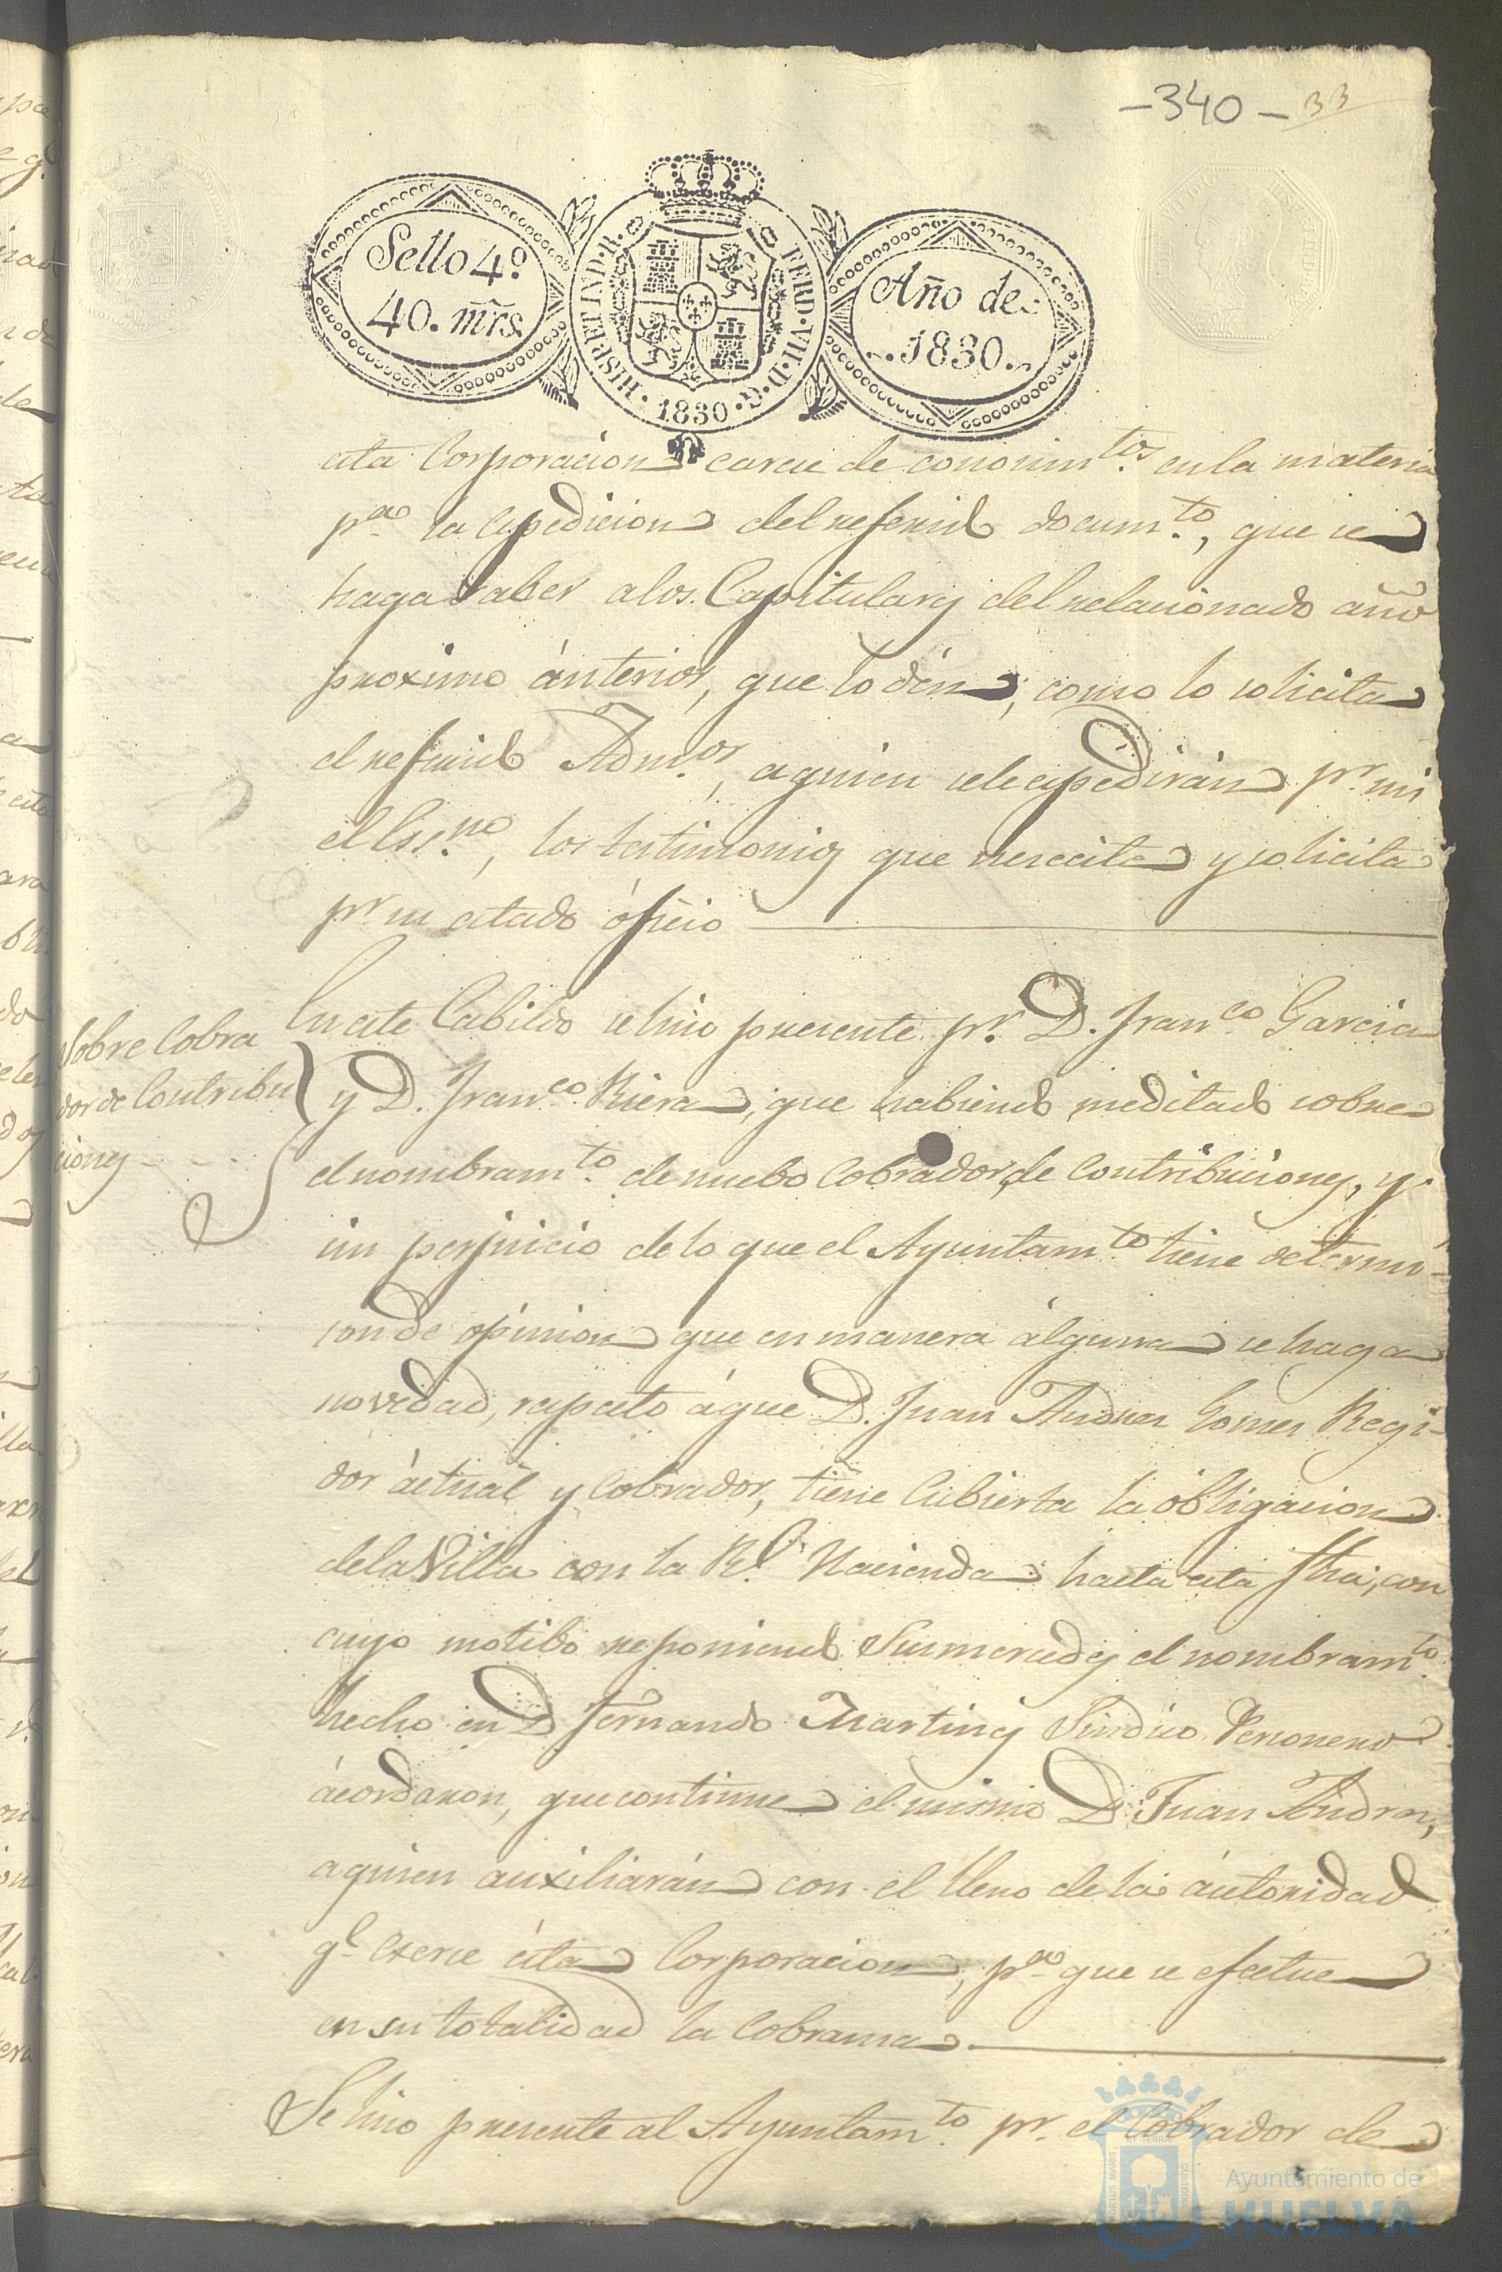 -340- 33
Sello 4º
40. mrs.
HISP. ET IND. R.
FERD. VII. D. G.
1830
Año de
1830.
esta Corporacion carece de conocim.tos en la materia
p.a la espedicion del referido docum.to, que se
haga saber a los Capitulares del relacionado año
proximo ánterior, que lo dén, como lo solicita
el referido Adm.or, a quien se le espedirán p.r mi
el Ess.no, los testimonios que necesita y solicita
p.r su citado óficio
Sobre Cobra
dor de Contribu
ciones
En este Cabildo se hizo presente p.r D. Fran.co Garcia
y D. Fran.co Riera, que habiendo meditado sobre
el nombram.to de nuebo Cobrador de Contribuciones, y
sin perjuicio de lo que el Ayuntam.to tiene determi-
son de opinion que en manera álguna se haga
novedad, respecto á que D. Juan Andres Gomez Regi-
dor áctual y Cobrador, tiene Cubierta la obligacion
de la Villa con la R.l Hacienda hasta esta fha, con
cuyo motibo reponiendo Sus mercedes el nombram.to
hecho en D Fernando Martines Sindico Personero
ácordaron, que continue el mismo D. Juan Andres,
a quien auxiliarán con el lleno de la áutoridad
q.e exerce ésta Corporacion, p.a que se efectue
en su totalidad la Cobranza
Se hizo presente al Ayuntam.to p.r el Cobrador de
Ayuntamiento de
HUELVA